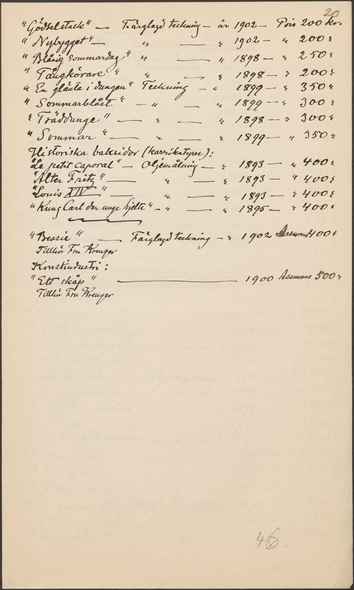 20
"Gödselstack" — Färglagd teckning — år 1902 — Pris 200 kr.
"Nybygget" — " — " 1902 — " 200 :
"Blåsig sommardag" " — " 1898 — " 250 :
" Tångkörare " " — " 1898 — " 200 :
" En glänta i dungen" Teckning — " 1899 — " 350 :
" Sommarblåst" — " — " 1899 — " 300 :
" Träddunge " — " — " 1898 — " 300 :
" Sommar " — " — " 1899 — " 350 :
Historiska baksidor (karrikatyrer):
"Le petit caporal" — Oljemålning — " 1893 — " 400 :
"Alter Fritz" — " — " 1893 — " 400 :
"Louis XIV" — " — " 1893 — " 400 :
"Kung Carl den unge hjelte" — " — " 1895 — " 400 :
"Bessie" — Färglagd teckning — " 1902 Assurans 400 :
Tillhör Fru Kreuger
Konstindustri :
"Ett skåp" — 1900 Assurans 500 :
Tillhör Fru Kreuger